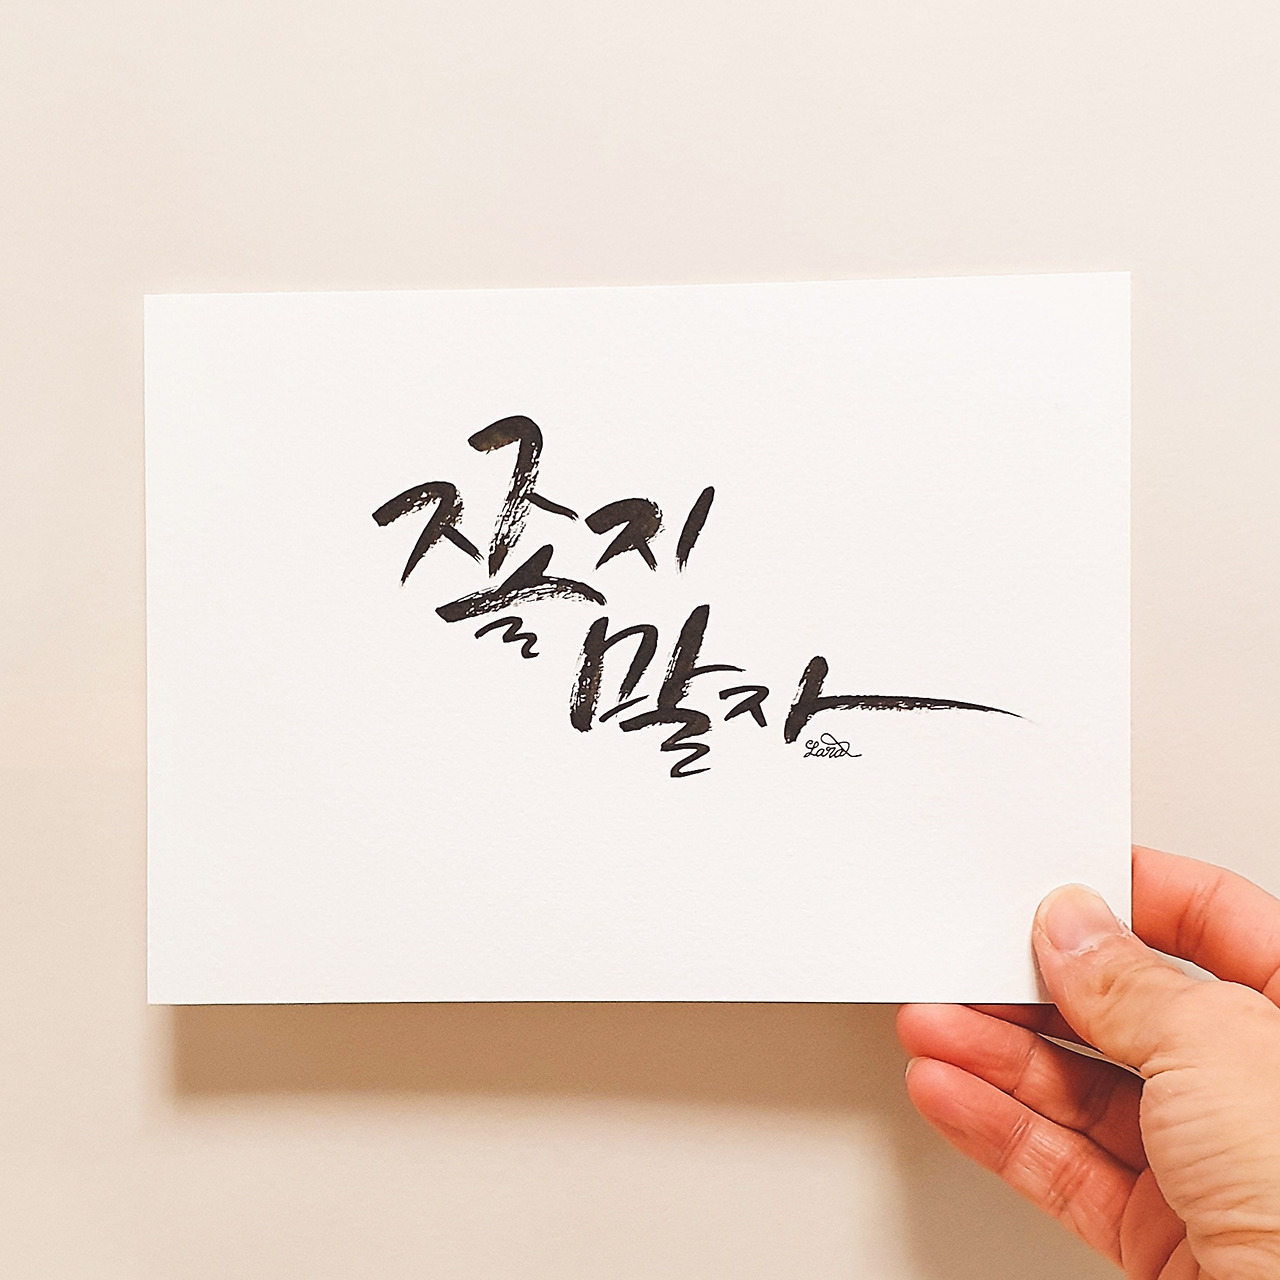 쫄지
말자
Lara